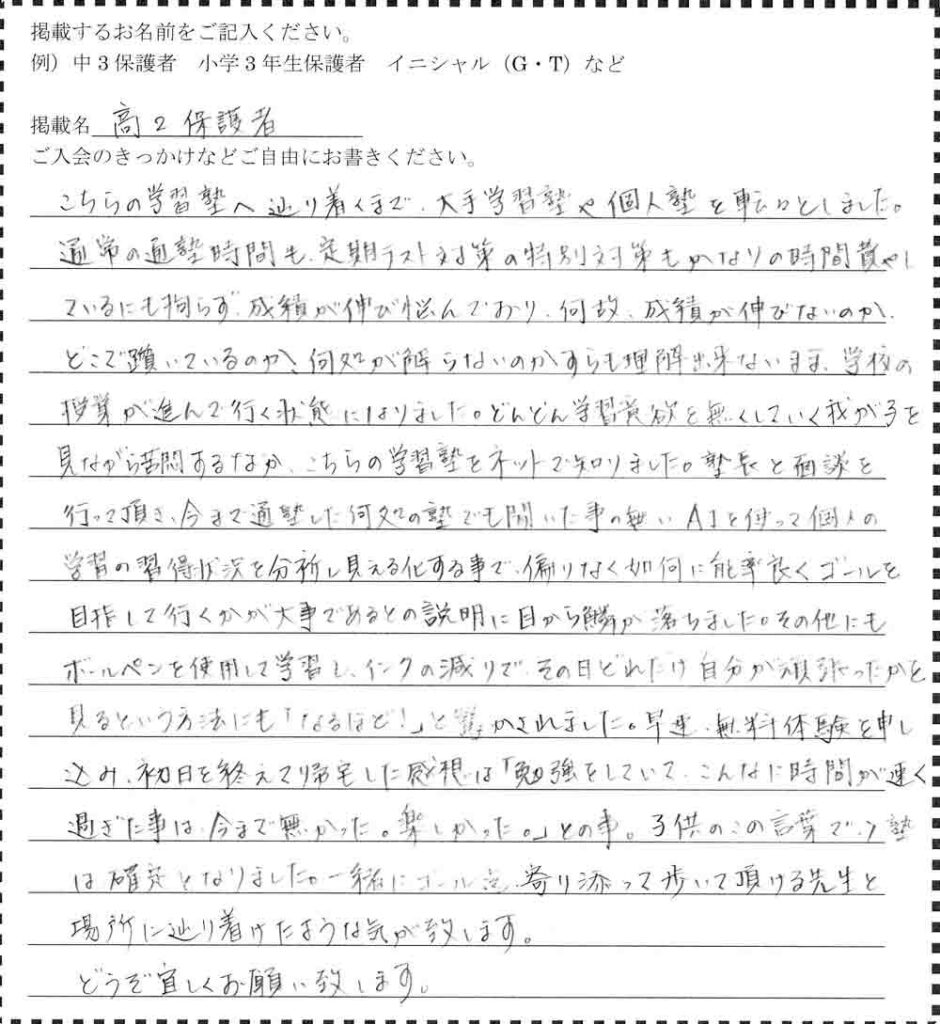 掲載するお名前をご記入ください。
例）中３保護者　小学３年生保護者　イニシャル（G・T）など
掲載名 高２保護者
ご入会のきっかけなどご自由にお書きください。
こちらの学習塾へ辿り着くまで、大手学習塾や個人塾を転々としました。
通常の通塾時間も、定期テスト対策の特別対策もかなりの時間費やし
ているにも拘らず、成績が伸び悩んでおり、何故、成績が伸びないのか、
どこで躓いているのか、何処が解らないのかすらも理解出来ないまま、学校の
授業が進んで行く状態になりました。どんどん学習意欲を無くしていく我が子を
見ながら苦悶するなか、こちらの学習塾をネットで知りました。塾長と面談を
行って頂き、今まで通塾した何処の塾でも聞いた事の無いAIを使って個人の
学習の習得状況を分析し見える化する事で、偏りなく如何に能率良くゴールを
目指して行くかが大事であるとの説明に目から鱗が落ちました。その他にも
ボールペンを使用して学習し、インクの減りで、その日どれだけ自分が頑張ったかを
見るという方法にも「なるほど！」と驚かされました。早速、無料体験を申し
込み、初日を終えて帰宅した感想は「勉強をしていて、こんなに時間が速く
過ぎた事は、今まで無かった。楽しかった。」との事。子供のこの言葉で入塾
は確定となりました。一緒にゴール迄、寄り添って歩いて頂ける先生と
場所に辿り着けたような気が致します。
どうぞ宜しくお願い致します。